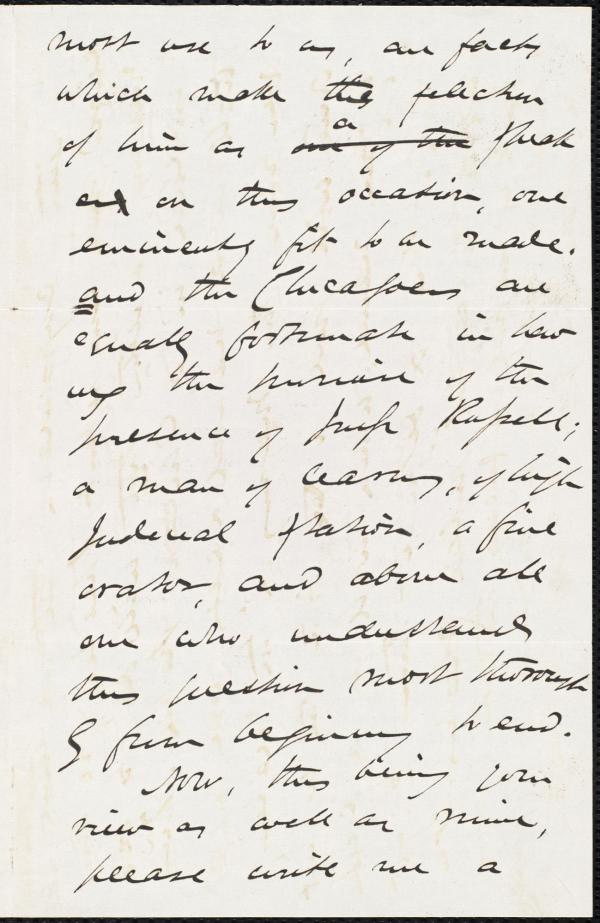 most use to us, are facts
which make the selection
of him as a speak
er on this occasion, one
eminently fit to be made.
and the Chicagoens are
equally fortunate in hav
ing the promise of the
presence of Judge Russell;
a man of learning, of high
Judicial station, a fine
orator, and above all
one who understands
this question most thorough
ly from beginning to end.
Now, this being your
view as well as mine,
please write me a